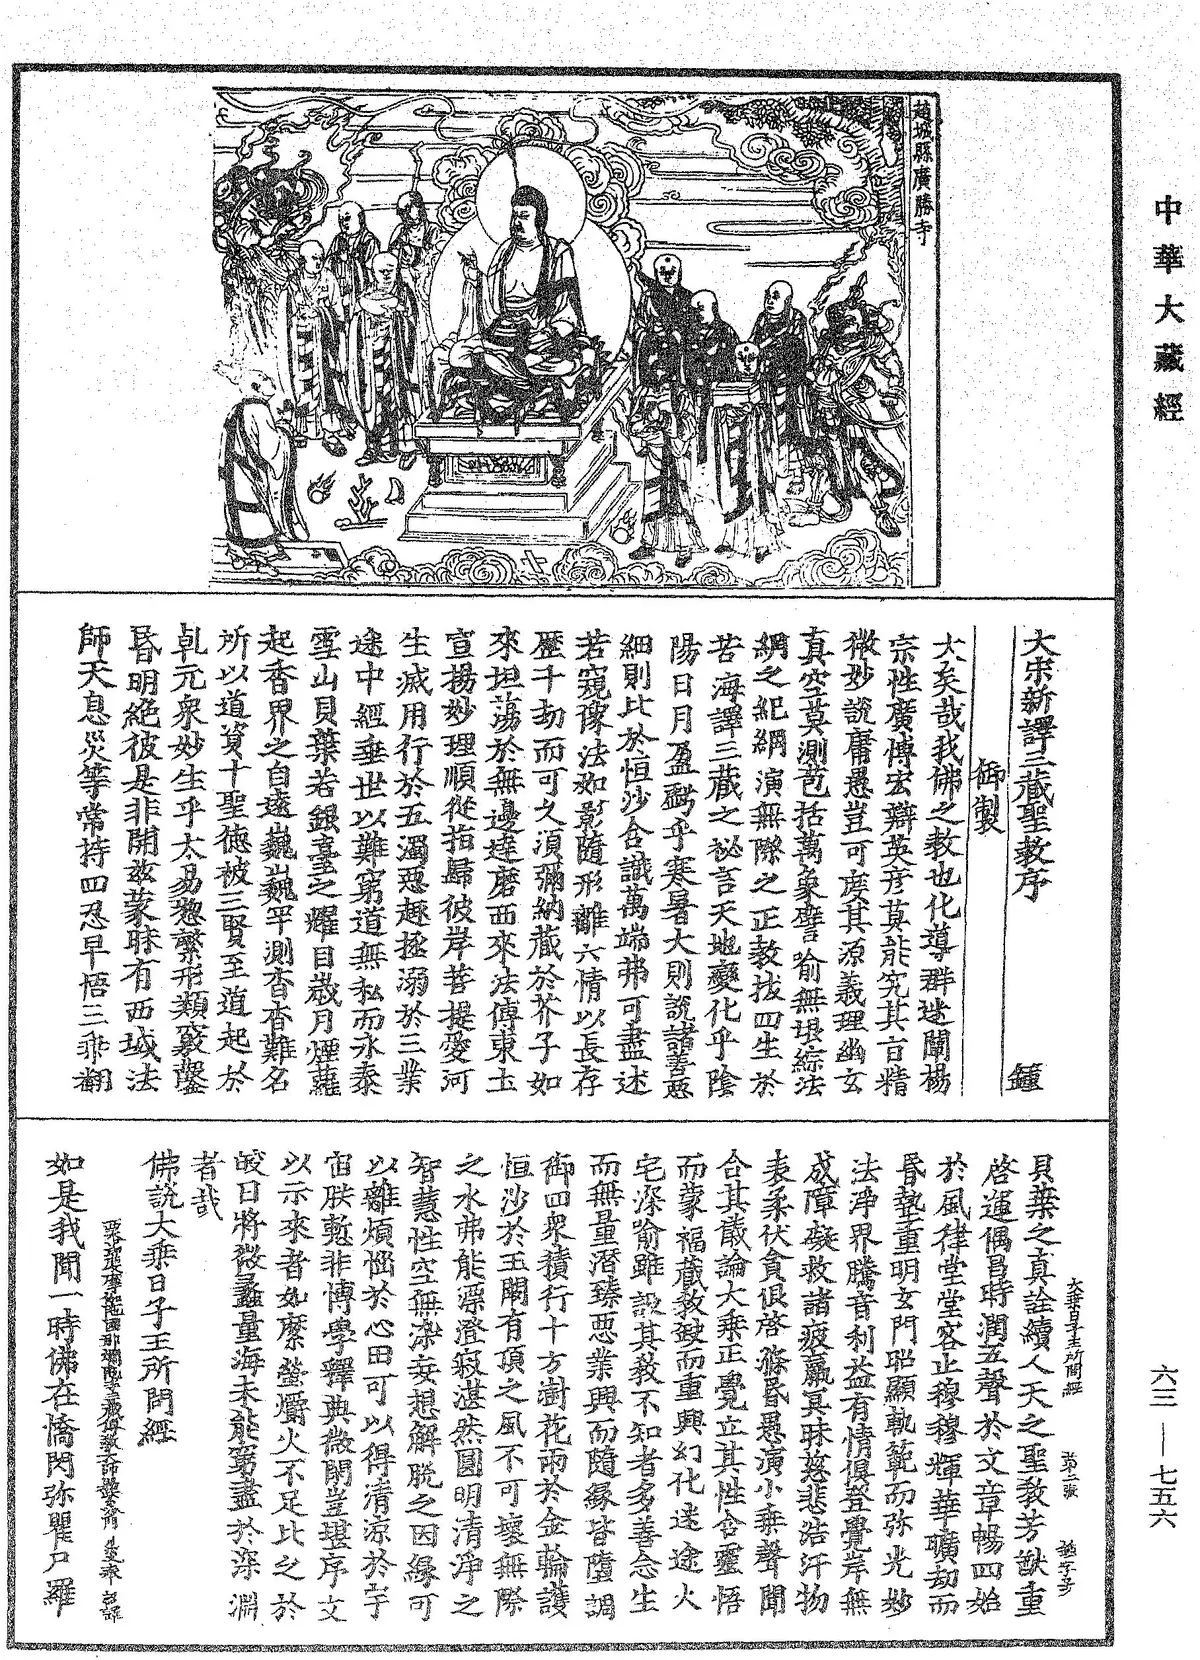 中華大藏經
趙城縣廣勝寺
大宋新譯三藏聖教序
鍾
御製
大矣哉我佛之教也化導群迷闡楊
宗性廣博宏辯英彥莫能究其言精
微妙說庸愚豈可度其源義理幽玄
真空莫測苞括萬象譬喻無垠綜法
綱之紀綱演無際之正教拔四生於
苦海譯三藏之祕言天地變化乎陰
陽日月盈虧乎寒暑大則說諸善惡
細則比於恒沙含識萬端弗可盡述
若窺像法如影隨形離六情以長存
歷千劫而可久須彌納藏於芥子如
來坦蕩於無邊達磨西來法傳東土
宣揚妙理順從指歸彼岸菩提愛河
生滅用行於五濁惡趣拯溺於三業
途中經垂世以難窮道無私而永泰
雪山貝葉若銀臺之耀目歲月煙蘿
起香界之自遠巍巍罕測杳杳難名
所以道資十聖德被三賢至道起於
乹元衆妙生乎太易惣繁形類竅鑿
昏明絕彼是非開兹蒙昧有西域法
師天息災等常持四忍早悟三乘翻
貝葉之真詮續人天之聖教芳猷重
啓運偶昌時潤五聲於文章暢四始
於風律堂堂容止穆穆輝華曠劫而
昏墊重明玄門昭顯軌範而弥光妙
法淨界騰音利益有情俱登覺岸無
成障礙救諸疲羸冥昧慈悲浩汗物
表柔伏貪很啓滌昏愚演小乘聲聞
合其儀論大乘正覺立其性含靈悟
而蒙福藏教缺而重興幻化迷途火
宅深喻雖設其教不知者多善念生
而無量潛臻惡業興而隨緣皆墮調
御四衆積行十方澍花雨於金輪護
恒沙於玉闕有頂之風不可壞無際
之水弗能漂澄寂湛然圓明清淨之
智慧性空無染妄想解脫之因緣可
以離煩惱於心田可以得清凉於宇
宙朕慙非博學釋典微閑豈堪序文
以示來者如縻螢爝火不足比之於
皎日將微蠡量海未能窮盡於深淵
者哉
佛說大乘日子王所問經
如是我聞一時佛在憍閃弥瞿尸羅
大乘日子王所問經
六三—七五六